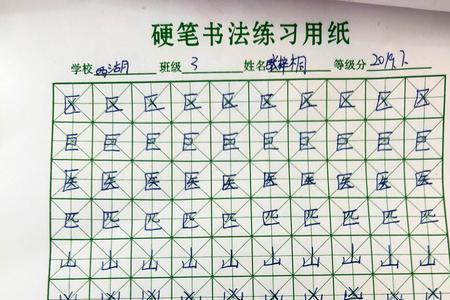 硬笔书法练习用纸
学校 西湖 班级 3 姓名 梓桐 等级分 2019.7.
区 区 区 区 区 区 区 区 区 区
巨 巨 巨 巨 巨 巨 巨 巨 巨 巨
医 医 医 医 医 医 医 医 医 医
匹 匹 匹 匹 匹 匹 匹 匹 匹 匹
山 山 山 山 山 山 山 山 山 山